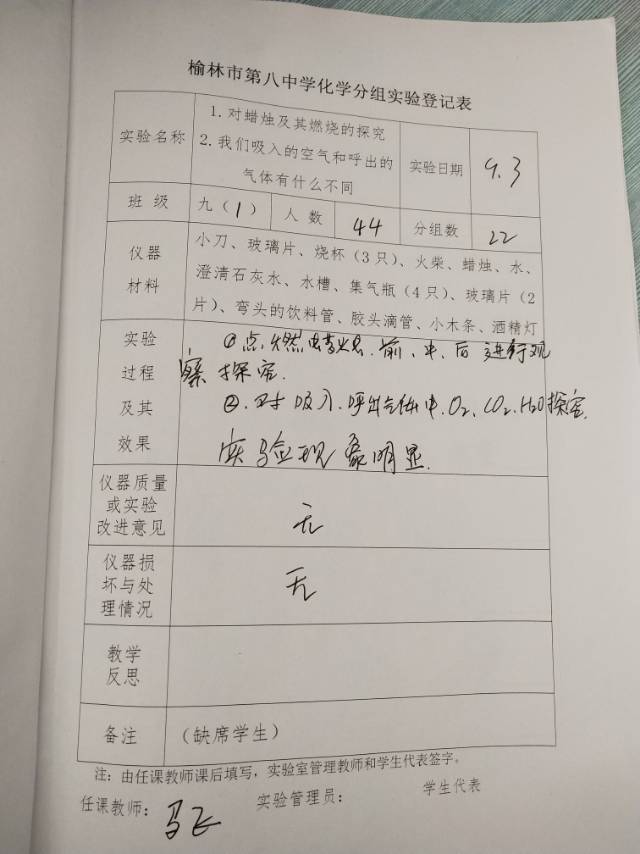 榆林市第八中学化学分组实验登记表
实验名称
1.对蜡烛及其燃烧的探究
2.我们吸入的空气和呼出的
气体有什么不同
实验日期
9.3
班 级
九（1）
人 数
44
分组数
22
仪器
材料
小刀、玻璃片、烧杯（3只）、火柴、蜡烛、水、
澄清石灰水、水槽、集气瓶（4只）、玻璃片（2
片）、弯头的饮料管、胶头滴管、小木条、酒精灯
实验
过程
及其
效果
①点燃蜡烛前、中、后进行观
察探究.
②.对吸入.呼出气体中.O₂、CO₂、H₂O探究.
实验现象明显.
仪器质量
或实验
改进意见
无
仪器损
坏与处
理情况
无
教学
反思
备注
（缺席学生）
注：由任课教师课后填写，实验室管理教师和学生代表签字。
任课教师：马飞
实验管理员：
学生代表